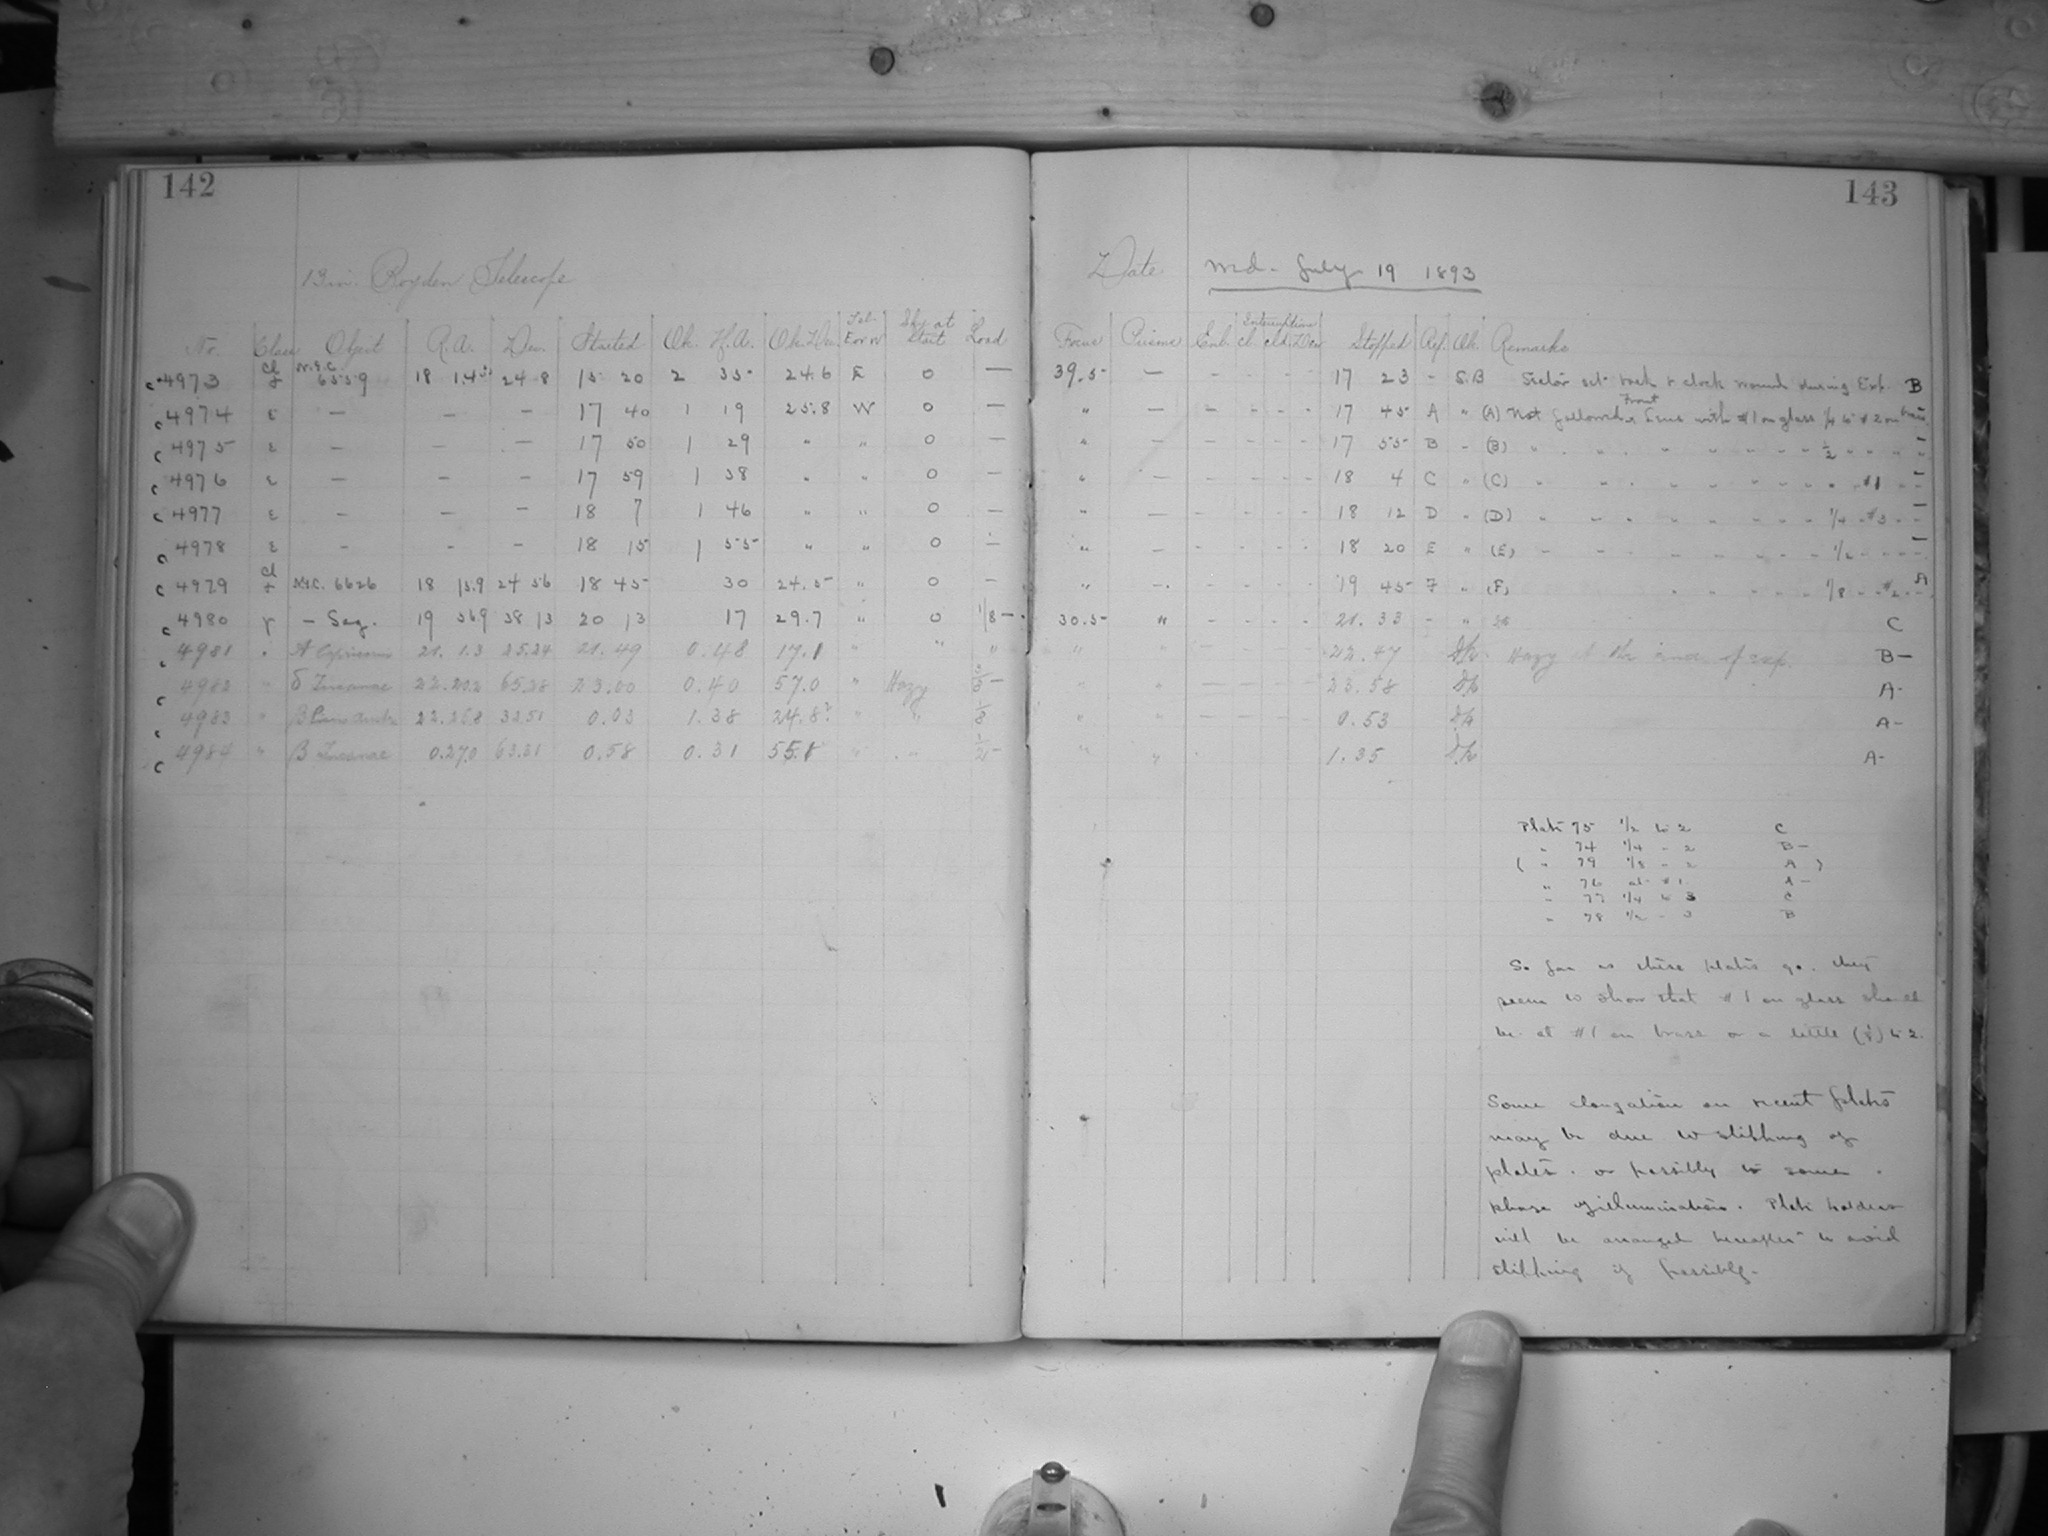 142
143
13 in. Boyden Telescope
Date Wed. July 19 1893
No. Class Object R.A. Dec. Started Ob. H.A. Ob. Dec. Tel. E or W Sky at Start Load Focus Prisms Interruptions Cl. Cld. Dew Stopped Ref. Ob. Remarks
c 4973 Cl N.G.C. 6559 18 24 8 15 20 2 35 24.6 E 0 — 39.5 — - - - - 17 23 - S.B Sector set back & clock wound during Exp. B
c 4974 ε — - - 17 40 1 19 25.8 W 0 — " — - - - - 17 45 A " (A) Not followed Front Lens with #1 on glass 1/4 to #2 on brass
c 4975 ε — - - 17 50 1 29 " " 0 — " — - - - - 17 55 B - (B) " " " " " " 1/2 " " "
c 4976 ε — - - 17 59 1 38 " " 0 — " — - - - - 18 4 C " (C) " " " " " " #1 - -
c 4977 ε — - - 18 7 1 46 " " 0 — " — - - - - 18 12 D " (D) " " " " " " 1/4 - #3 - -
c 4978 ε — - - 18 15 1 55 " " 0 — " — - - - - 18 20 E " (E) 1/2 - - - -
c 4979 Cl N.G.C. 6626 18 15.9 24 56 18 45 30 24.5 " 0 — " — - - - - 19 45 F " (F) 1/8 - #2 - - A
c 4980 γ — Sag. 19 56.9 38 13 20 13 17 29.7 " 0 1/8 — 30.5 " - - - - 21. 33 - " C
c 4981 " A Capricorni 21. 1.3 25.24 21. 49 0. 48 17.1 " " " " " 22. 47 Hazy at the end of exp. B—
c 4982 " δ Tucanae 22. 20.2 65.28 23.00 0. 40 57.0 " Hazy " " 23. 58 A-
c 4983 " β Pis. Aust. 32 51 0. 03 1. 38 24.8 " " 1/8 " " 0. 53 A-
c 4984 " β Tucanae 0.27.0 63.31 0. 58 0. 31 55.1 " " " " 1. 35 A-
Plate 75 1/2 to 2 C
" 74 1/4 - 2 B—
( " 79 1/8 - 2 A )
" 76 at #1 A—
" 77 1/4 to 3 C
" 78 1/2 - 3 B
So far as these plates go, they
seem to show that #1 on glass should
be at #1 on brass or a little (1/8) to 2.
Some elongation on recent plates
may be due to slipping of
plates, or possibly to some
phase of illumination. Plate holders
will be arranged hereafter to avoid
slipping if possible.